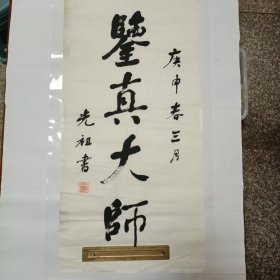 庚申春三月
鑒真大師
光祖書